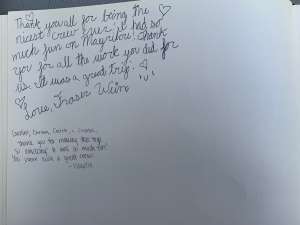 Thank you all for being the
nicest crew ever! I had so
much fun on Mayreau! Thank
you for all the work you did for
us. It was a great trip.
Love, Fraser Weir
thank you for making this trip
so amazing! It was so much fun!
You were such a great crew!